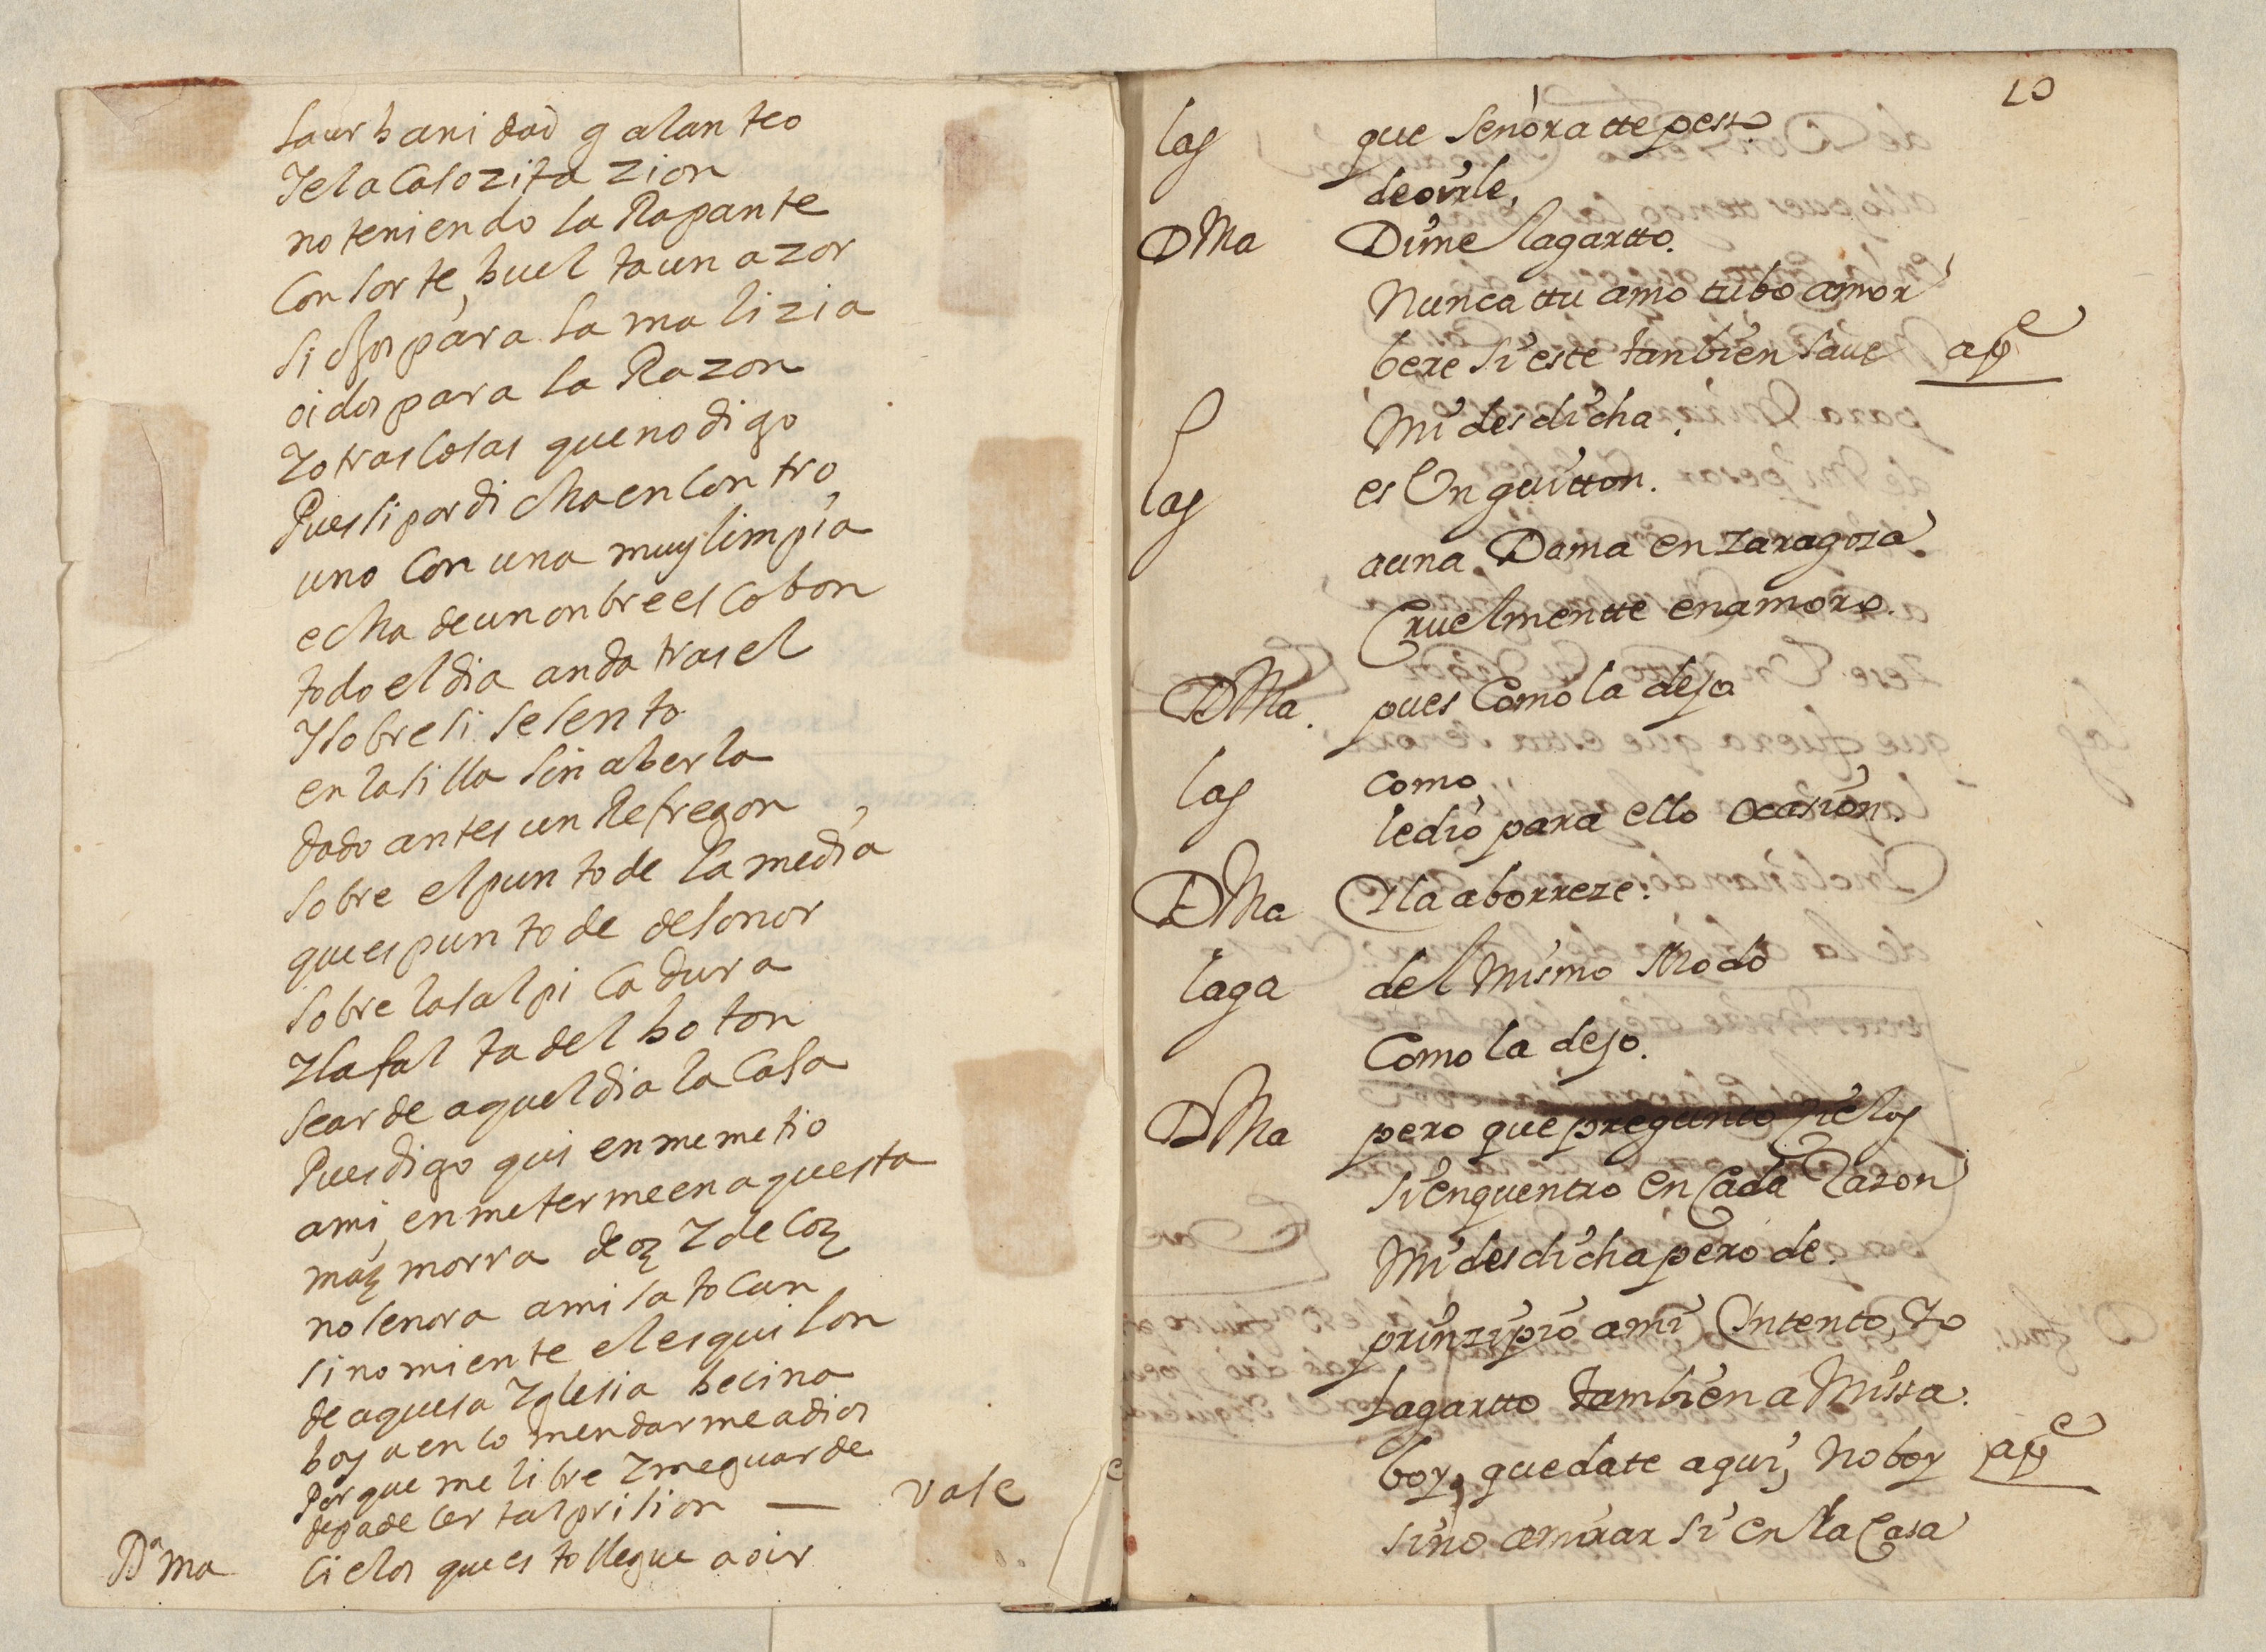 la urbanidad galanteo
Ie la Cosozitazion
no teniendo la Rapante
Consorte, buelta un azor
si ojos para la malizia
oidos para la Razon
Iotras Cosas que no digo
Pues si por dicha encontro
uno Con una muy limpia
echa de un onbre escobon
todo el dia anda tras el
I sobre si se sento
en la silla sin aberla
dado antes un Refregon
sobre el punto de la media
que es punto de desonor
sobre la salpicadura
I la falta del boton
se arde aquel dia la Casa
Pues digo quien me metio
a mi, en meterme en aquesta
mazmorra de oz I de Coz
no senora a misa tocan
si no miente el esquilon
de aquesa Iglesia becina
boy a encomendarme a dios
Por que me libre I me guarde
de padecer tal prision — vase
Dª ma Cielos que esto llegue a oir
10
lag que Señora tte pess.
de oirle,
DMa Dime lagartto.
Nunca ttu amo tubo amor
bere si este tanbien saue ap^e
Mi desdicha.
lag es Un guitton.
a una Dama en Zaragoza.
Cruelmentte enamoro.
DMa. pues Como la dejo
lag como,
le dio para ello ocasion.
DMa I la aborreze.
laga del Mismo Modo
Como la dejo.
DMa pero que pregunto Zielos
si enquentro en Cada Razon
Mi desdicha pero de.
prinzipio a mi Intento, Io
Lagartto tambien a Missa.
boy, quedate aqui, No boy ap^e
sino a mirar si en la Casa